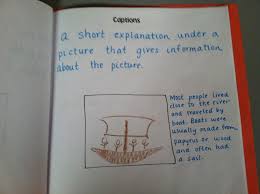 Captions
a short explanation under a
picture that gives information
about the picture.
Most people lived
close to the river
and traveled by
boat. Boats were
usually made from
papyrus or wood
and often had
a sail.